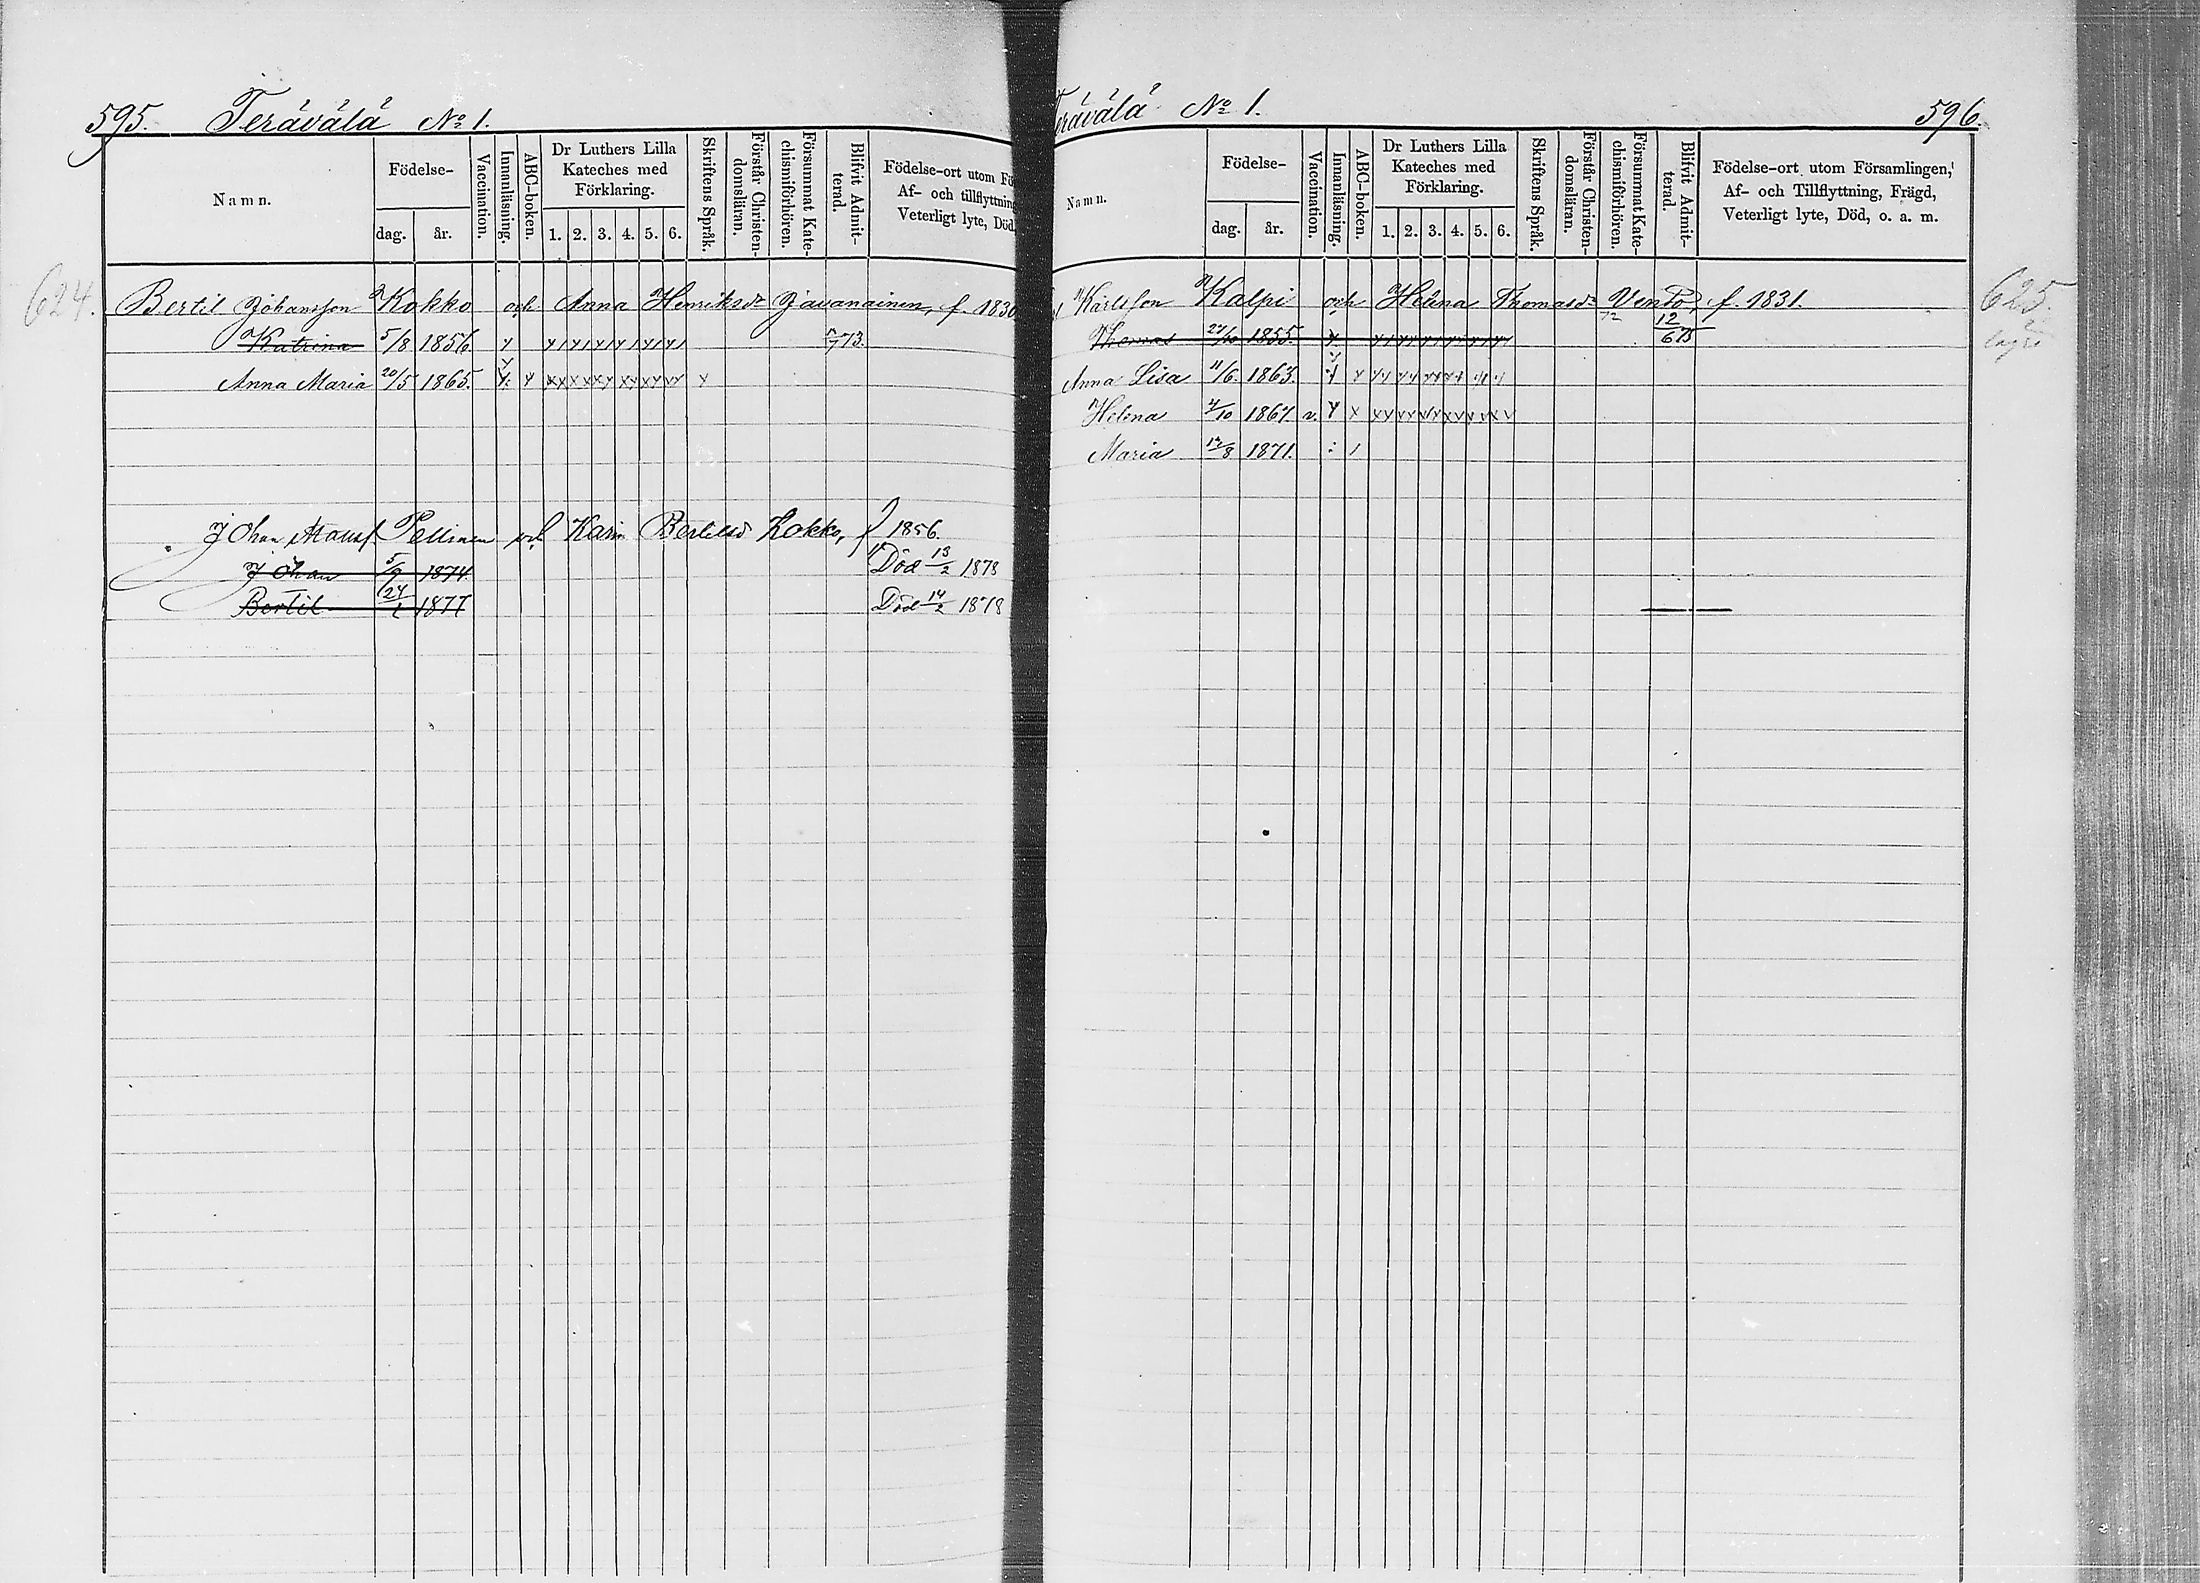 595. Teräväläˮ № 1.
Namn.
Födelse-
dag. år.
Vaccination.
Innanläsning.
ABC-boken.
Dr Luthers Lilla Kateches med Förklaring.
1. 2. 3. 4. 5. 6.
Skriftens Språk.
Förstår Christen-domsläran.
Försummat Kate-chismiförhören.
Blifvit Admit-terad.
Födelse-ort utom Fö
Af- och tillflyttning
Veterligt lyte, Död
624. Bertil Johansson Kokko och Anna Henriksdr Javanainen, f. 1830
Katrina 5/8 1856 73.
Anna Maria 20/5 1865.
Johan Pellinen Karin Bertilsd Kokko, f 1856.
Johan 5/9 1874 Död 13/2 1878
Bertil 1877 Död 14/2 1878
erävälä № 1. 596.
Namn.
Födelse-
dag. år.
Vaccination.
Innanläsning.
ABC-boken.
Dr Luthers Lilla Kateches med Förklaring.
1. 2. 3. 4. 5. 6.
Skriftens Språk.
Förstår Christen-domsläran.
Försummat Kate-chismiförhören.
Blifvit Admit-terad.
Födelse-ort utom Församlingen,
Af- och Tillflyttning, Frägd,
Veterligt lyte, Död, o. a. m.
Karlsson Kalpi och Helena Thomasdr Vento, f. 1831. 625.
Thomas 1855. 12/6 75
Anna Lisa 11/6 1863.
Helena 4/10 1867. v.
Maria 1871.